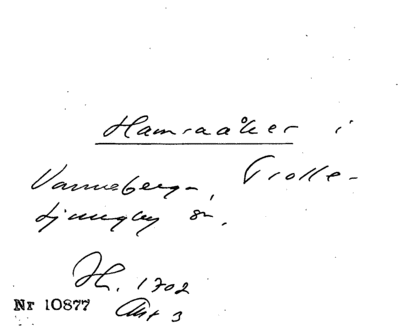 Hamraåker i
Vanneberga, Trolle-
Ljungby sn.
Hh. 1702
Nr 10877 Akt 3